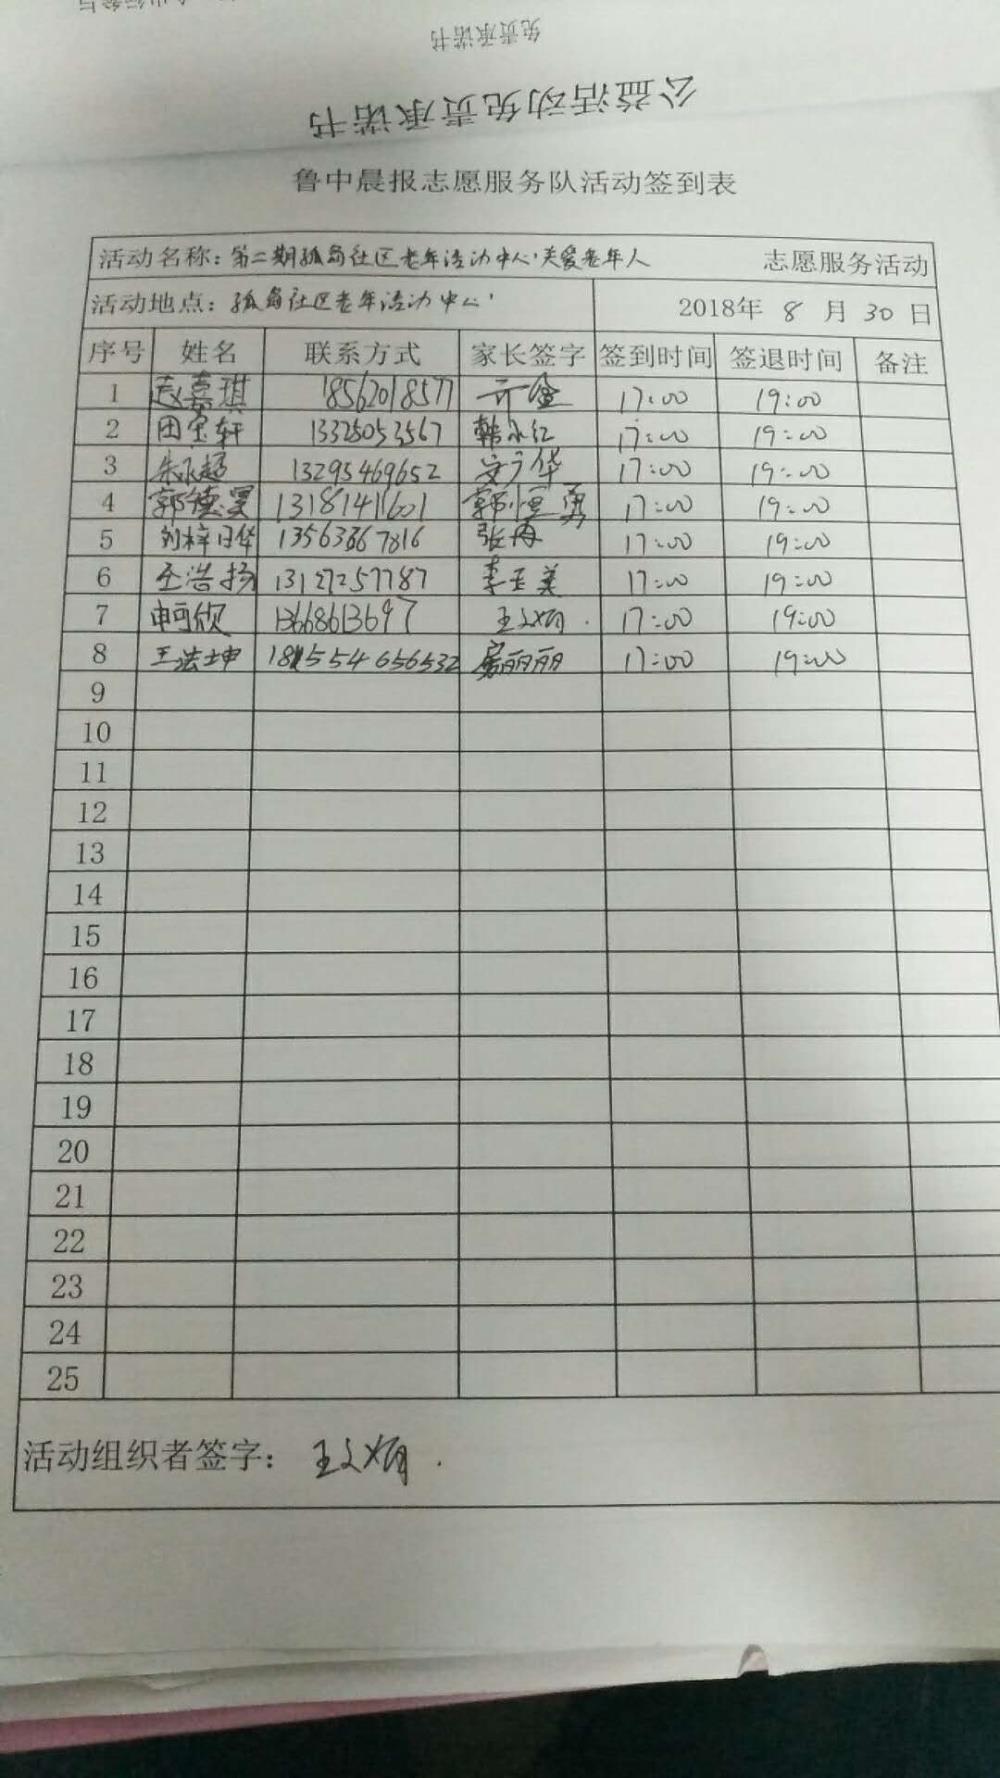 免责承诺书
公益活动免责承诺书
鲁中晨报志愿服务队活动签到表
活动名称：第二期孤岛社区老年活动中心，关爱老年人 志愿服务活动
活动地点：孤岛社区老年活动中心 2018年 8 月 30 日
序号 姓名 联系方式 家长签字 签到时间 签退时间 备注
1 赵嘉琪 18562018577 17:00 19:00
2 田宝轩 13325053567 韩永红 17:00 19:00
3 朱永超 13295469652 安广华 17:00 19:00
4 郭德昊 13181411601 郭恒勇 17:00 19:00
5 刘梓日华 张冉 17:00 19:00
6 王浩扬 13127257787 李玉美 17:00 19:00
7 申可欣 13668613697 王文娟. 17:00 19:00
8 王法坤 房丽丽 17:00 19:00
9
10
11
12
13
14
15
16
17
18
19
20
21
22
23
24
25
活动组织者签字：王文娟.